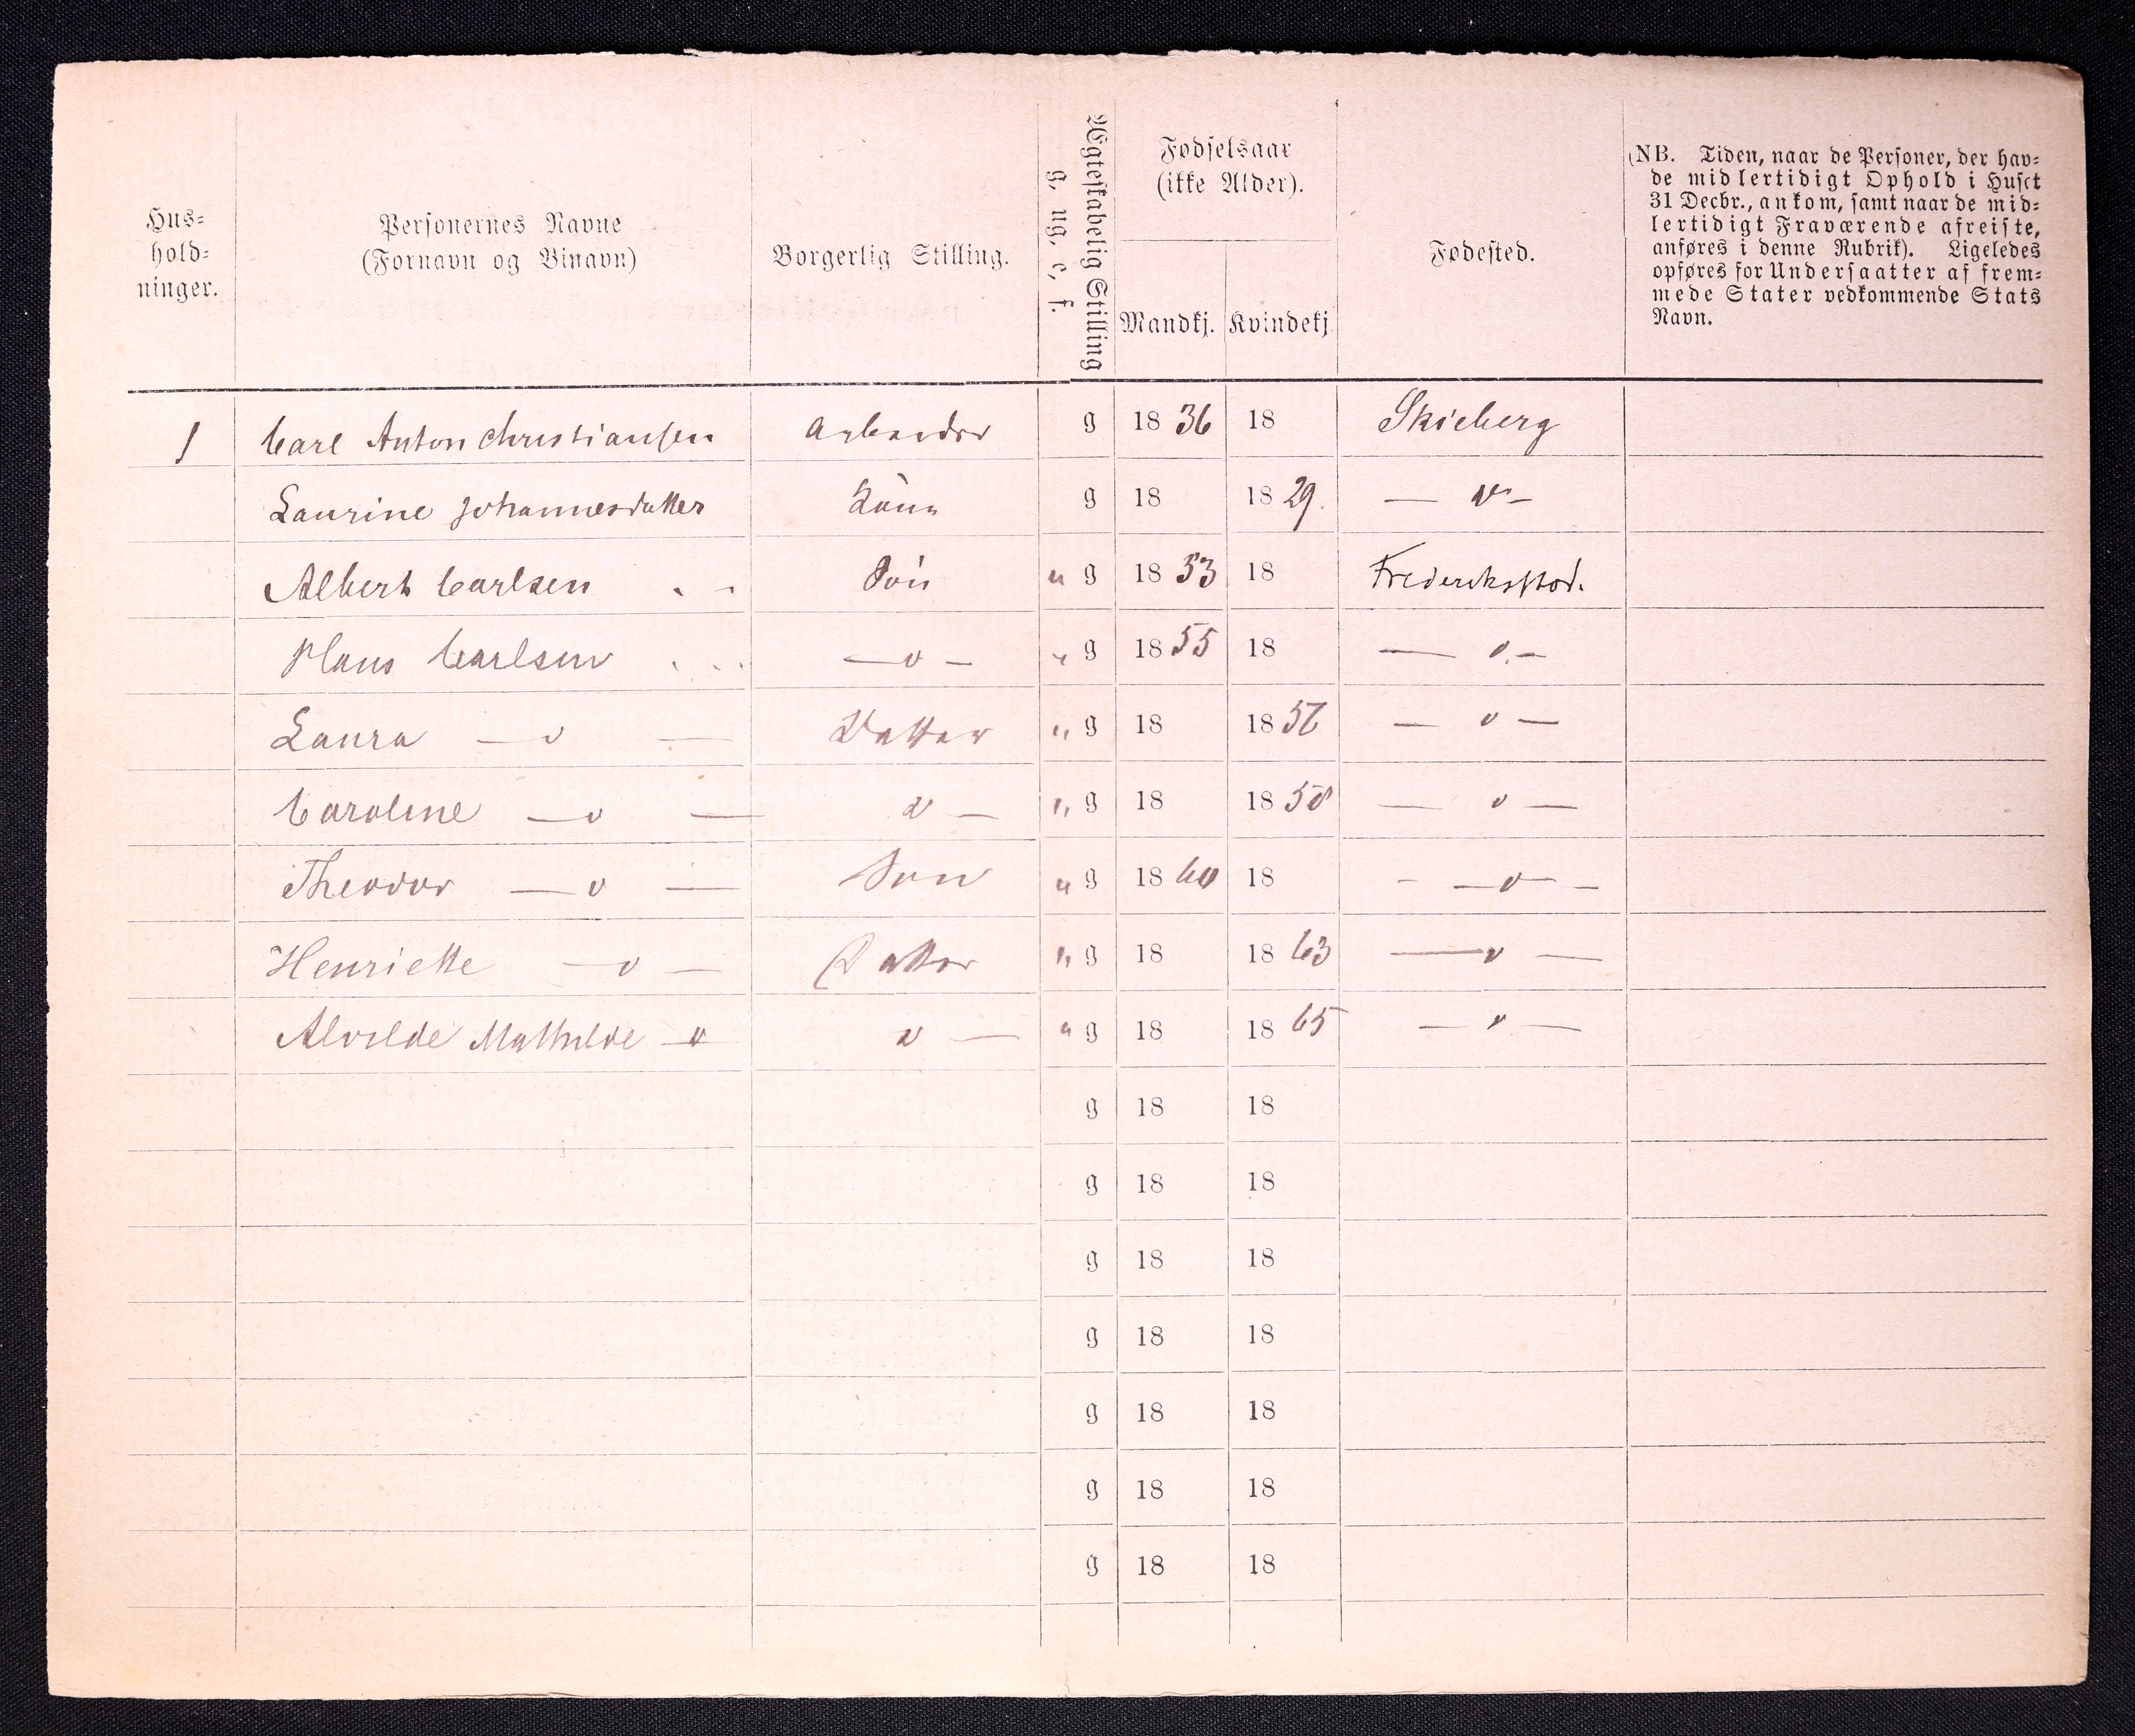 Hus-
hold-
ninger.
Personernes Navne
(Fornavn og Binavn)
Borgerlig Stilling.
Ægteskabelig Stilling
g, ug, e, f.
Fødselsaar
(ikke Alder).
Mandkj. Kvindekj
Fødested.
(NB. Tiden, naar de Personer, der hav-
de midlertidigt Ophold i Huset
31 Decbr., ankom, samt naar de mid-
lertidigt Fraværende afreiste,
anføres i denne Rubrik). Ligeledes
opføres for Undersaatter af frem-
mede Stater vedkommende Stats
Navn.
1 Carl Anton Christiansen Arbeider g 1836 18 Skieberg
Laurine Johannesdatter Kone g 18 1829. — " —
Albert Carlsen Søn u g 1853 18 Frederiksstad.
Hans Carlsen — " — u g 1855 18 — " —
Laura — " — Datter u g 18 1857 — " —
Caroline — " — " — u g 18 1858 — " —
Theodor — " — Søn u g 1860 18 — " —
Henriette — " — Datter u g 18 1863 — " —
Alvilde Mathilde — " " — u g 18 1865 — " —
g 18 18
g 18 18
g 18 18
g 18 18
g 18 18
g 18 18
g 18 18